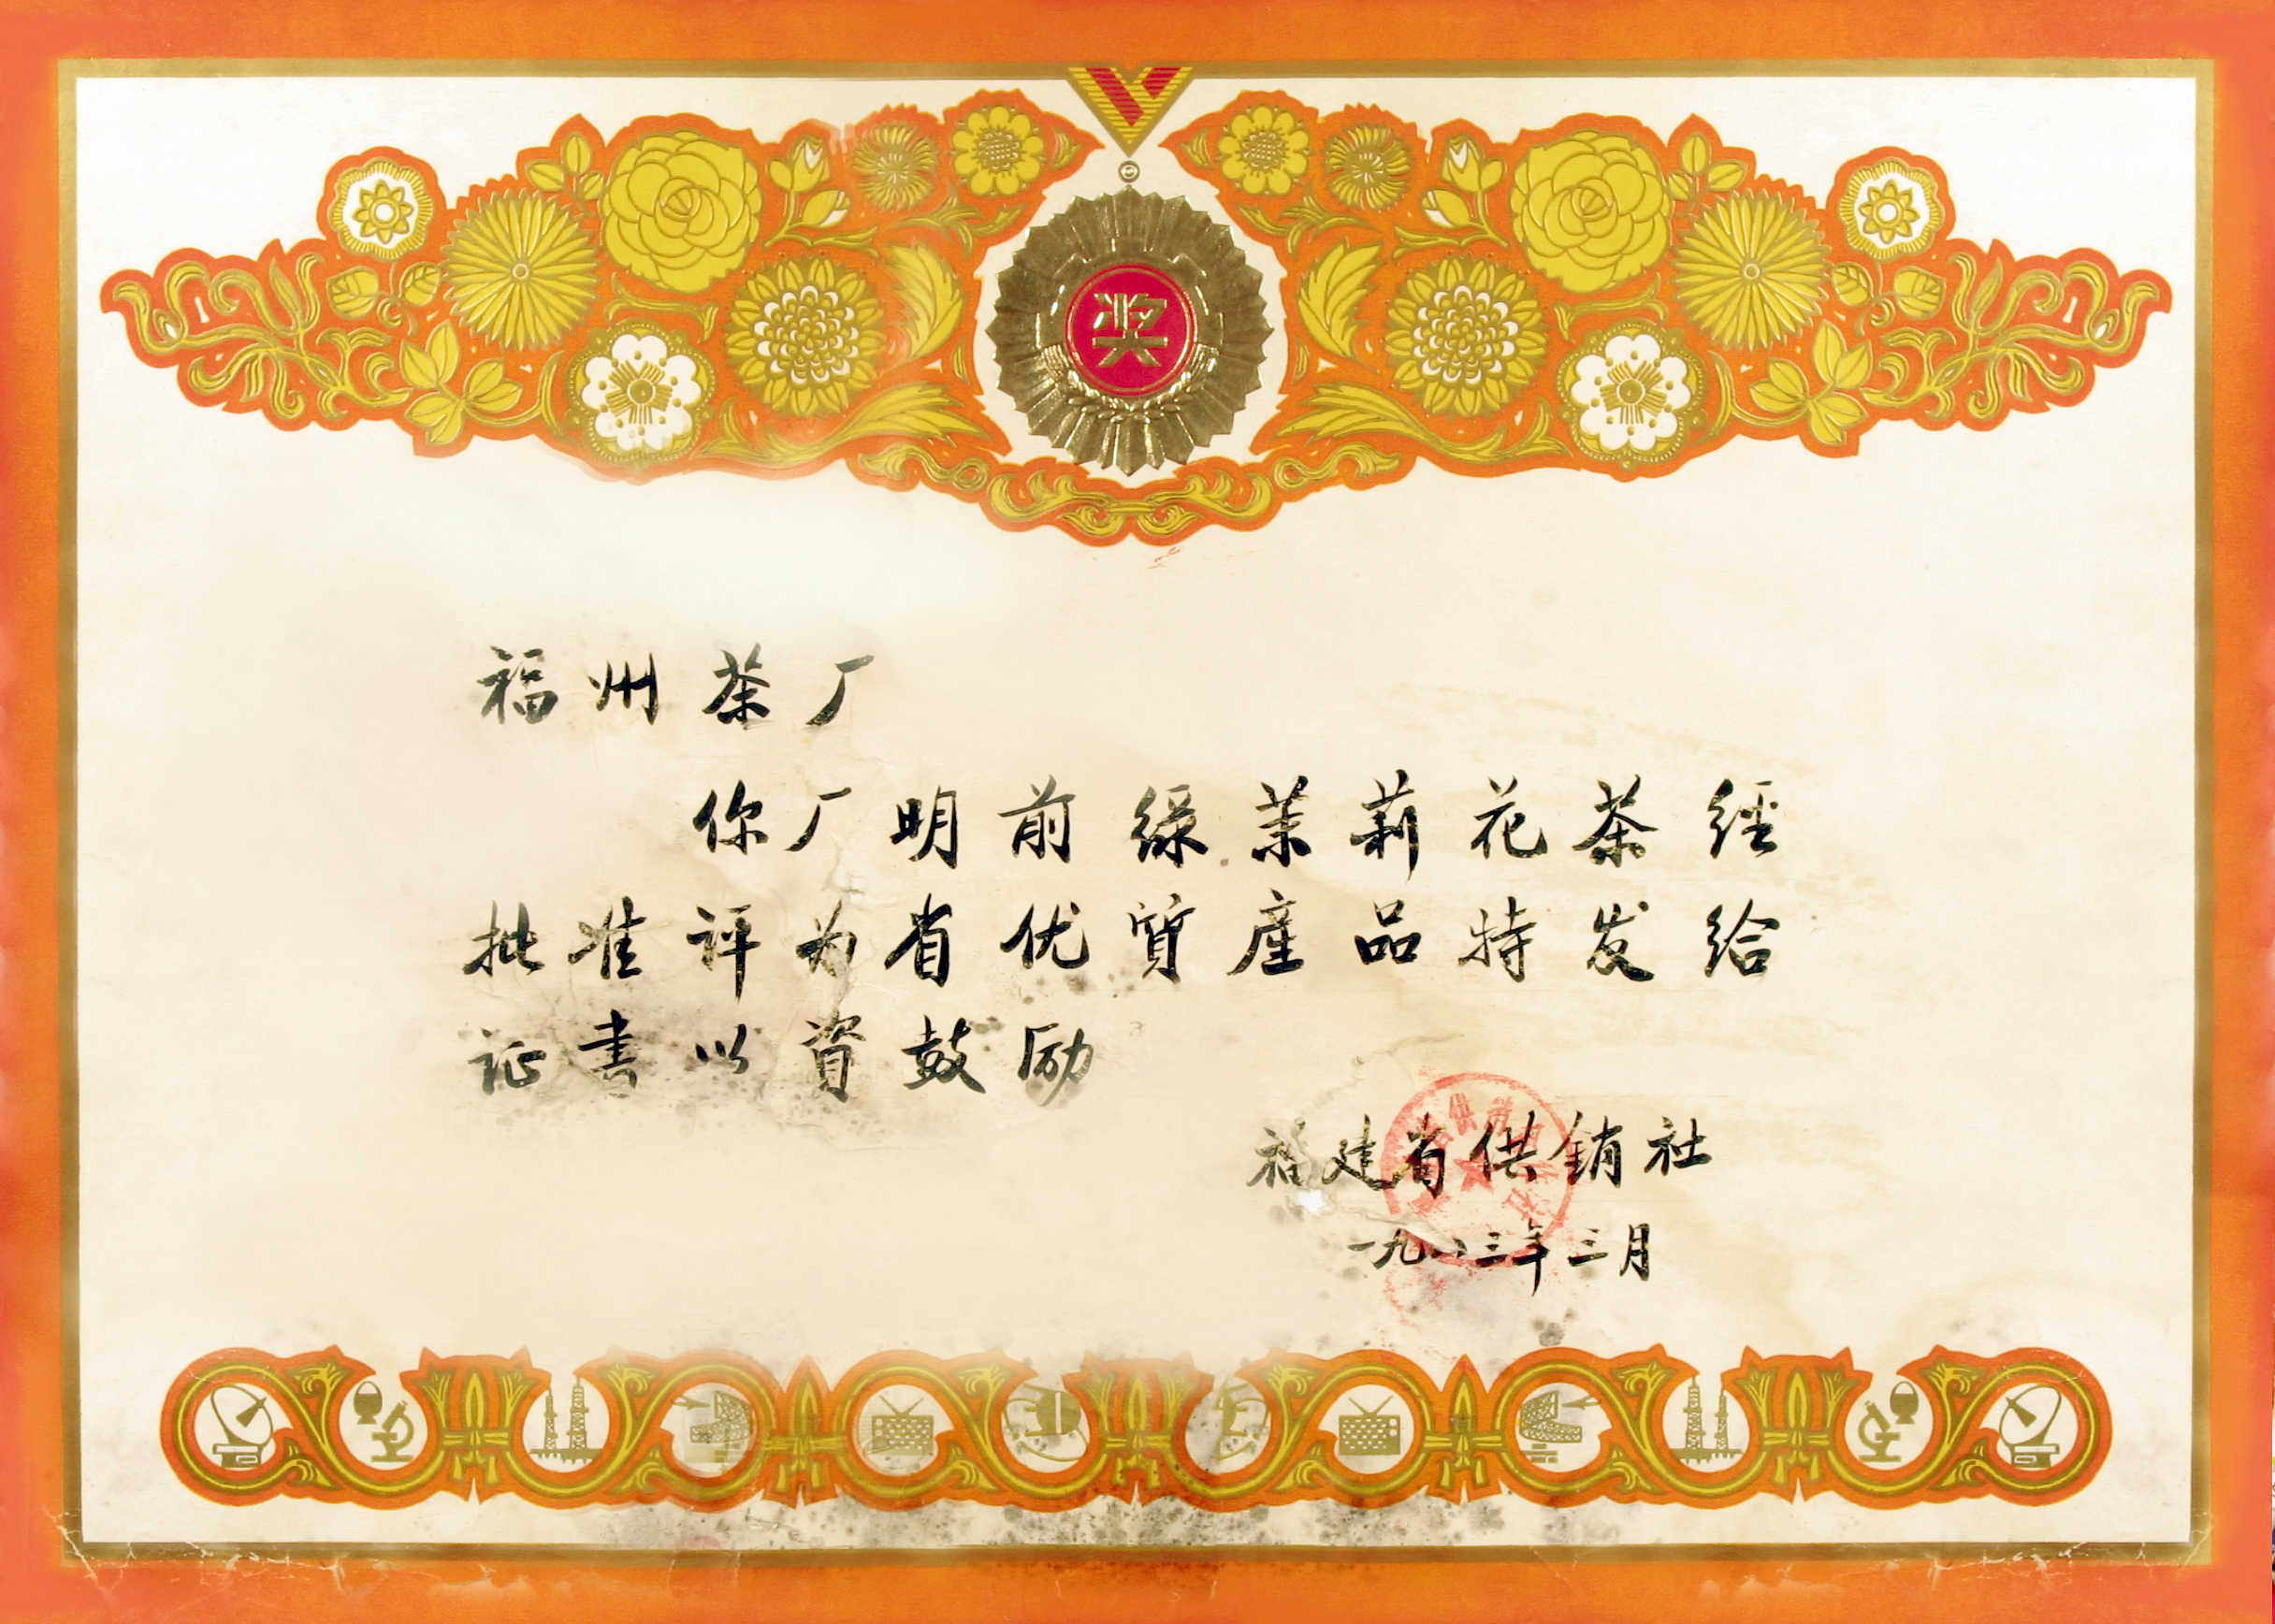 奖
福州茶厂
你厂明前绿茉莉花茶经
批准评为省优質産品特发给
证書以資鼓励
福建省供銷社
一九八三年三月